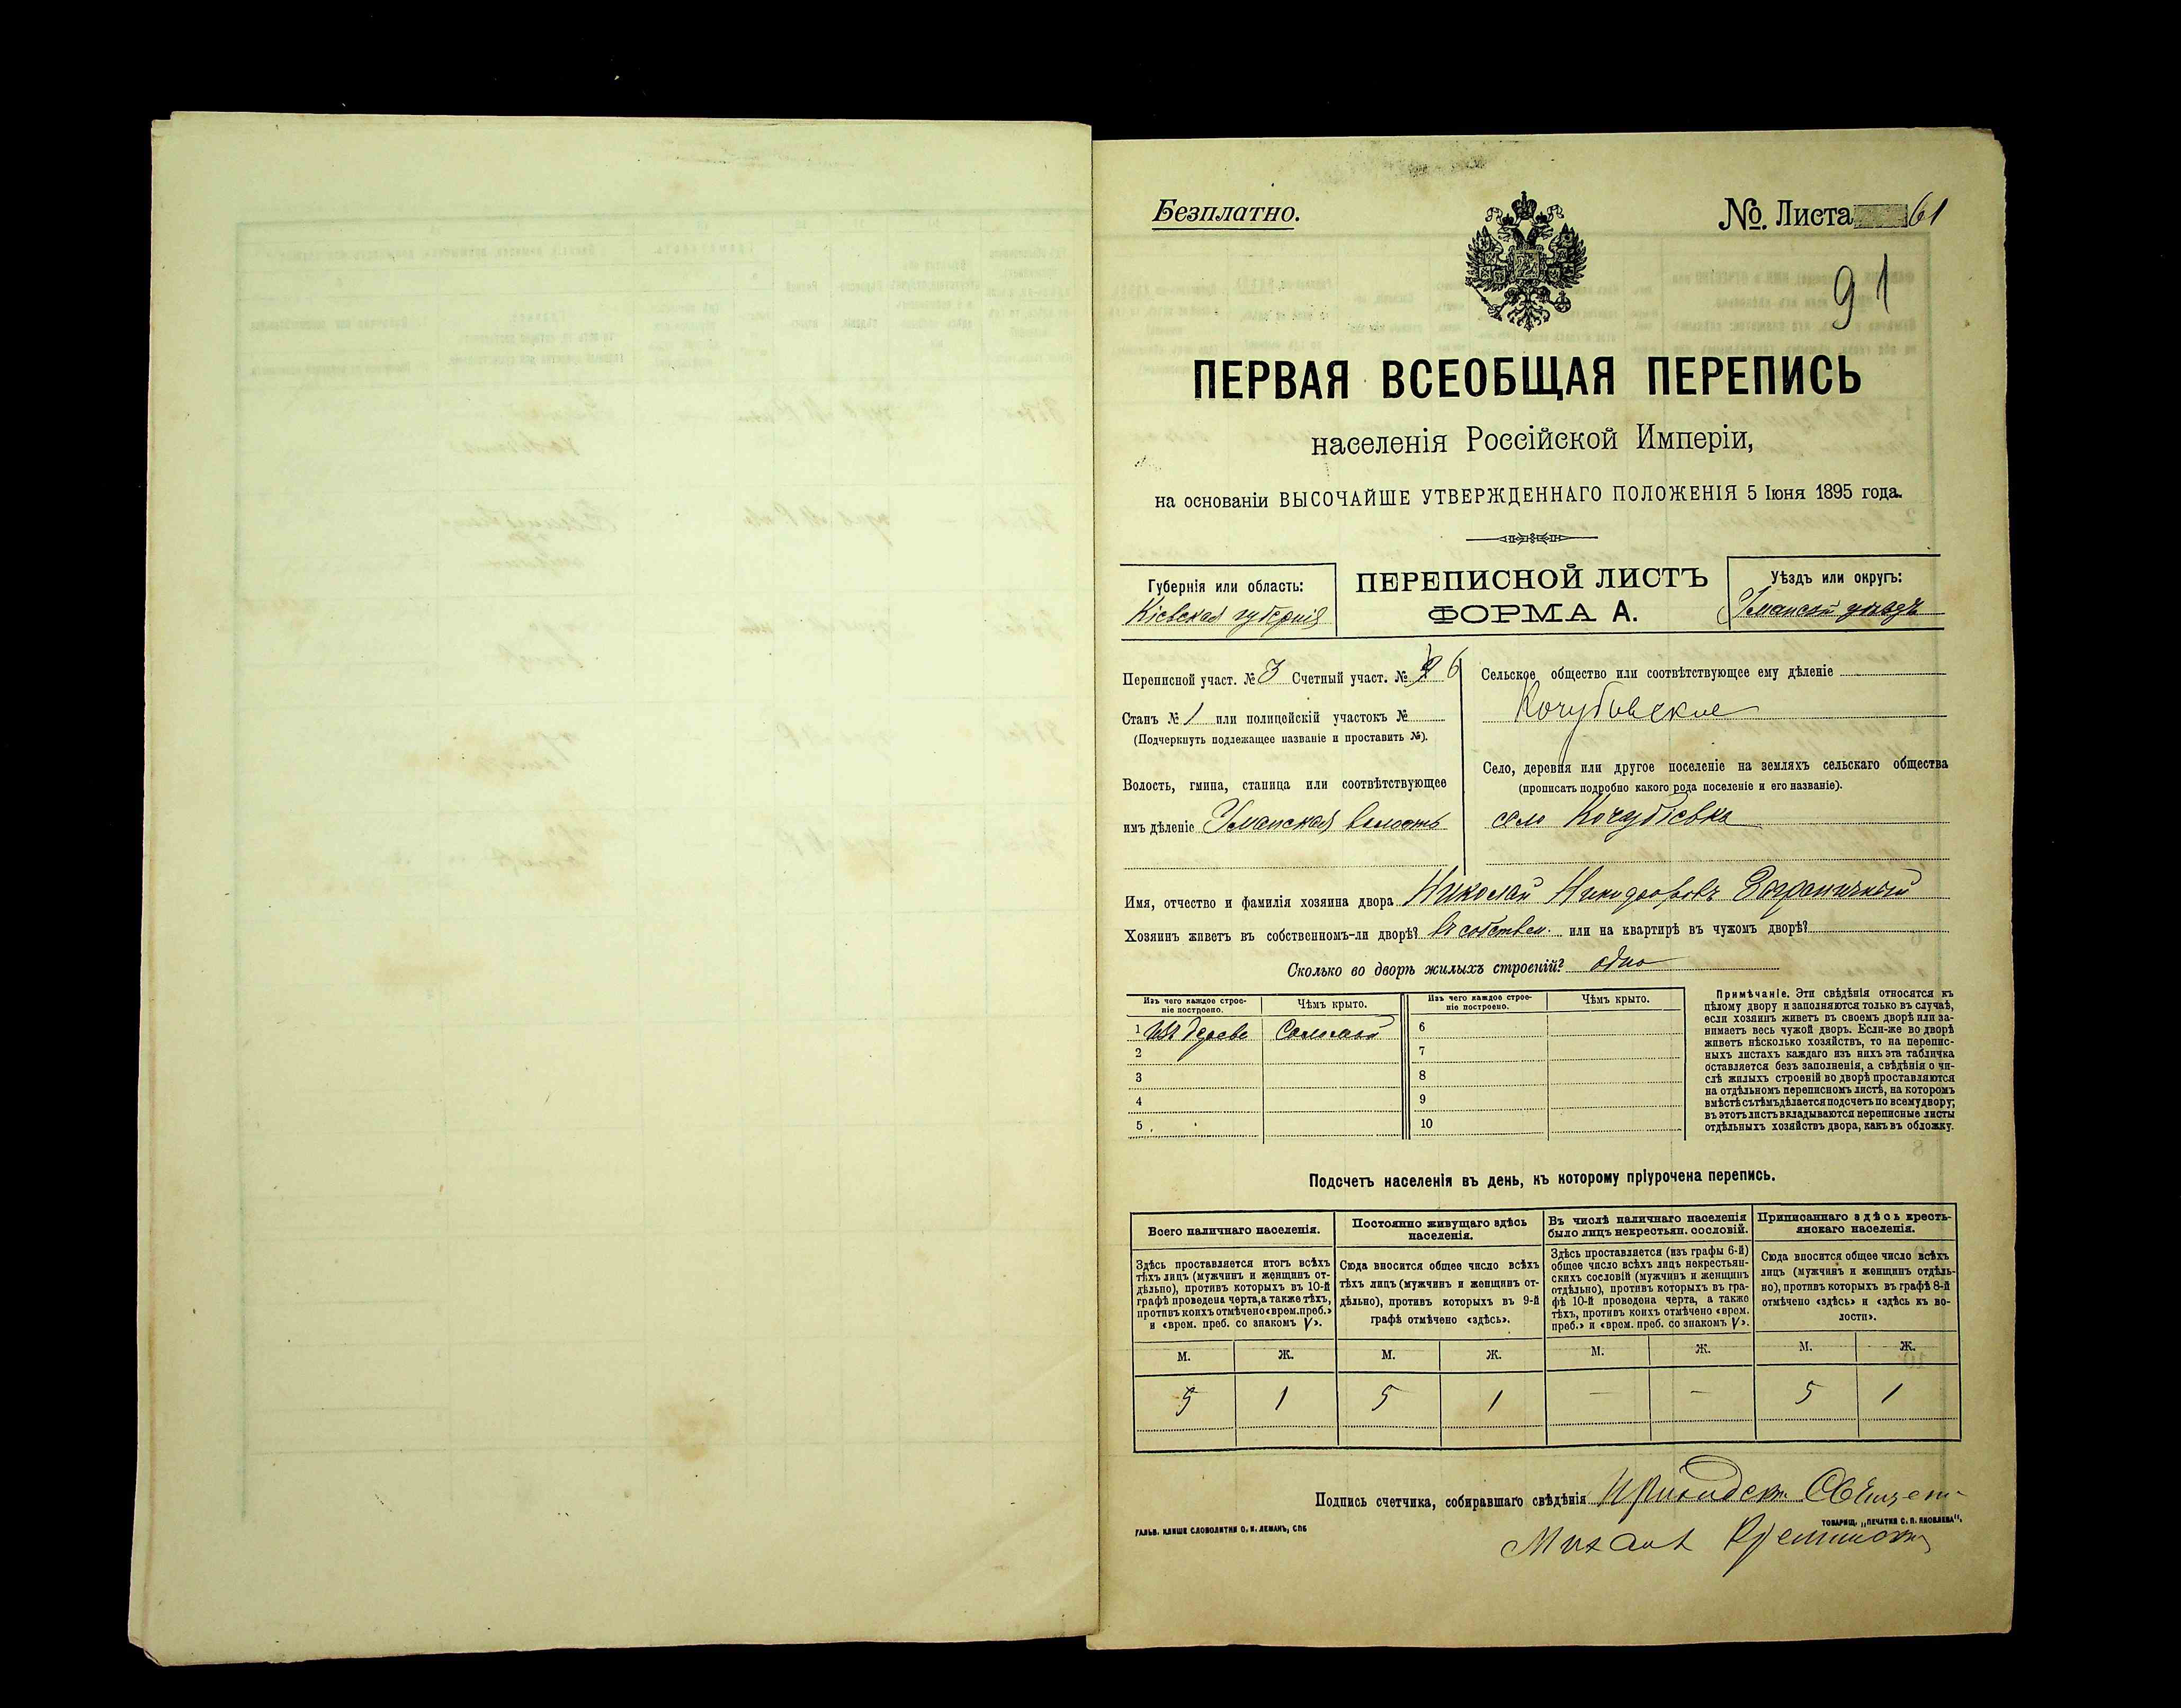 Безплатно.
№ Листа 61
91
ПЕРВАЯ ВСЕОБЩАЯ ПЕРЕПИСЬ
населенія Россійской Имперіи,
на основаніи ВЫСОЧАЙШЕ УТВЕРЖДЕННАГО ПОЛОЖЕНІЯ 5 Іюня 1895 года.
Губернія или область:
Кіевская губернія
ПЕРЕПИСНОЙ ЛИСТЪ
ФОРМА А.
Уѣздъ или округъ:
Уманскій уѣздъ
Переписной участ. № 3 Счетный участ. № 6
Станъ № 1 или полицейскій участокъ №
(Подчеркнуть подлежащее названіе и проставить №).
Волость, гмина, станица или соотвѣтствующее
имъ дѣленіе Уманская волость
Сельское общество или соотвѣтствующее ему дѣленіе
Кочубіевское
Село, деревня или другое поселеніе на земляхъ сельскаго общества
(прописать подробно какого рода поселеніе и его названіе).
село Кочубіевка
Имя, отчество и фамилія хозяина двора Николай Никифоровъ Заграничный
Хозяинъ живетъ въ собственномъ-ли дворѣ? въ собствен. или на квартирѣ въ чужомъ дворѣ?
Сколько во дворѣ жилыхъ строеній? одно
Изъ чего каждое строе-
ніе построено.
Чѣмъ крыто.
Изъ чего каждое строе-
ніе построено.
Чѣмъ крыто.
1 изъ дерева Соломой
2
3
4
5
6
7
8
9
10
Примѣчаніе. Эти свѣдѣнія относятся къ
цѣлому двору и заполняются только въ случаѣ,
если хозяинъ живетъ въ своемъ дворѣ или за-
нимаетъ весь чужой дворъ. Если-же во дворѣ
живетъ нѣсколько хозяйствъ, то на перепис-
ныхъ листахъ каждаго изъ нихъ эта табличка
оставляется безъ заполненія, а свѣдѣнія о чи-
слѣ жилыхъ строеній во дворѣ проставляются
на отдѣльномъ переписномъ листѣ, на которомъ
вмѣстѣ съ тѣмъ дѣлается подсчетъ по всему двору;
въ этотъ листъ вкладываются переписные листы
отдѣльныхъ хозяйствъ двора, какъ въ обложку.
Подсчетъ населенія въ день, къ которому пріурочена перепись.
Всего наличнаго населенія.
Здѣсь проставляется итогъ всѣхъ
тѣхъ лицъ (мужчинъ и женщинъ от-
дѣльно), противъ которыхъ въ 10-й
графѣ проведена черта, а также тѣхъ,
противъ коихъ отмѣчено «врем. преб.»
и «врем. преб. со знакомъ V».
Постоянно живущаго здѣсь
населенія.
Сюда вносится общее число всѣхъ
тѣхъ лицъ (мужчинъ и женщинъ от-
дѣльно), противъ которыхъ въ 9-й
графѣ отмѣчено «здѣсь».
Въ числѣ наличнаго населенія
было лицъ некрестьян. сословій.
Здѣсь проставляется (изъ графы 6-й)
общее число всѣхъ лицъ некрестьян-
скихъ сословій (мужчинъ и женщинъ
отдѣльно), противъ которыхъ въ гра-
фѣ 10-й проведена черта, а также
тѣхъ, противъ коихъ отмѣчено «врем.
преб.» и «врем. преб. со знакомъ V».
Приписаннаго здѣсь кресть-
янскаго населенія.
Сюда вносится общее число всѣхъ
лицъ (мужчинъ и женщинъ отдѣль-
но), противъ которыхъ въ графѣ 8-й
отмѣчено «здѣсь» и «здѣсь къ во-
лости».
М. Ж. М. Ж. М. Ж. М. Ж.
5 1 5 1 — — 5 1
Подпись счетчика, собиравшаго свѣдѣнія
ГАЛЬВ. КЛИШЕ СЛОВОЛИТНИ О. И. ЛЕМАНЪ, СПБ
ТОВАРИЩ. „ПЕЧАТНЯ С. П. ЯКОВЛЕВА“.
Михаил